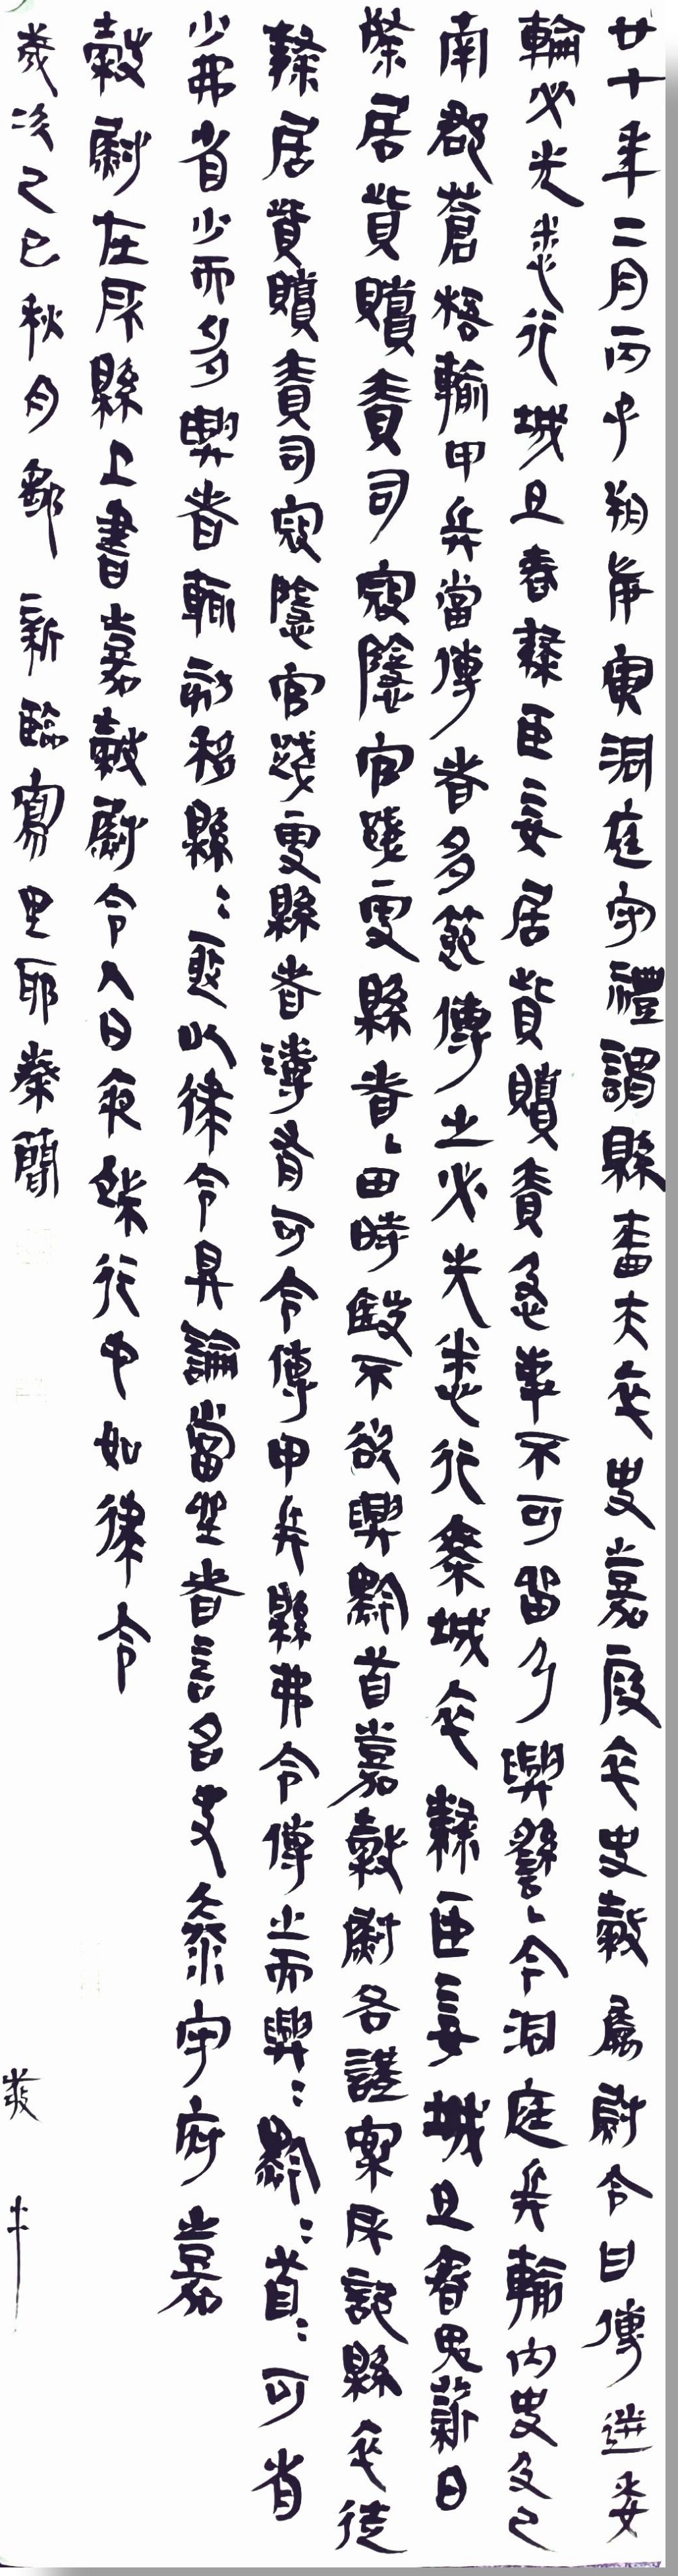 廿七年二月丙子朔庚寅洞庭守禮謂縣嗇夫卒史嘉叚卒史穀屬尉令曰傳送委
輸必先悉行城旦舂隸臣妾居貲贖責急事不可留乃興繇今洞庭兵輸内史及巴
南郡蒼梧輸甲兵當傳者多節傳之必先悉行乘城卒隸臣妾城旦舂鬼薪白
粲居貲贖責司寇隱官踐更縣者田時殹不欲興黔首嘉穀尉各謹案所部縣卒徒
隸居貲贖責司寇隱官踐更縣者簿有可令傳甲兵縣弗令傳之而興=黔=首=可省
少弗省少而多興者輒劾移縣=亟以律令具論當坐者言名夬泰守府嘉
穀尉在所縣上書嘉穀尉令人日夜端行它如律令
歲次己巳秋月鄒新臨寫里耶秦簡